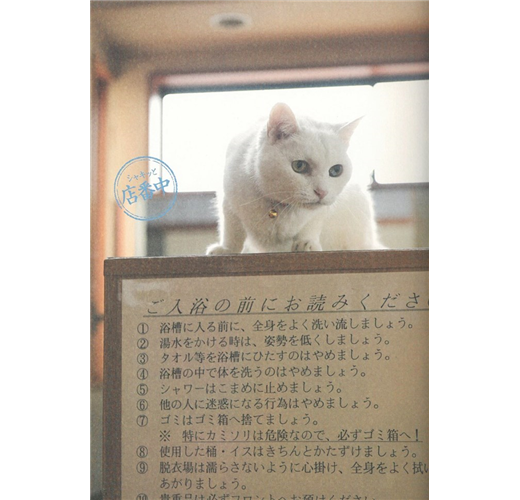 シャキッと
店番中
ご入浴の前にお読みくださ
① 浴槽に入る前に、全身をよく洗い流しましょう。
② 湯水をかける時は、姿勢を低くしましょう。
③ タオル等を浴槽にひたすのはやめましょう。
④ 浴槽の中で体を洗うのはやめましょう。
⑤ シャワーはこまめに止めましょう。
⑥ 他の人に迷惑になる行為はやめましょう。
⑦ ゴミはゴミ箱へ捨てましょう。
※ 特にカミソリは危険なので、必ずゴミ箱へ!
⑧ 使用した桶・イスはきちんとかたずけましょう。
⑨ 脱衣場は濡らさないように心掛け、全身をよく拭い
あがりましょう。
⑩ 貴重品は必ずフロントへお預けください